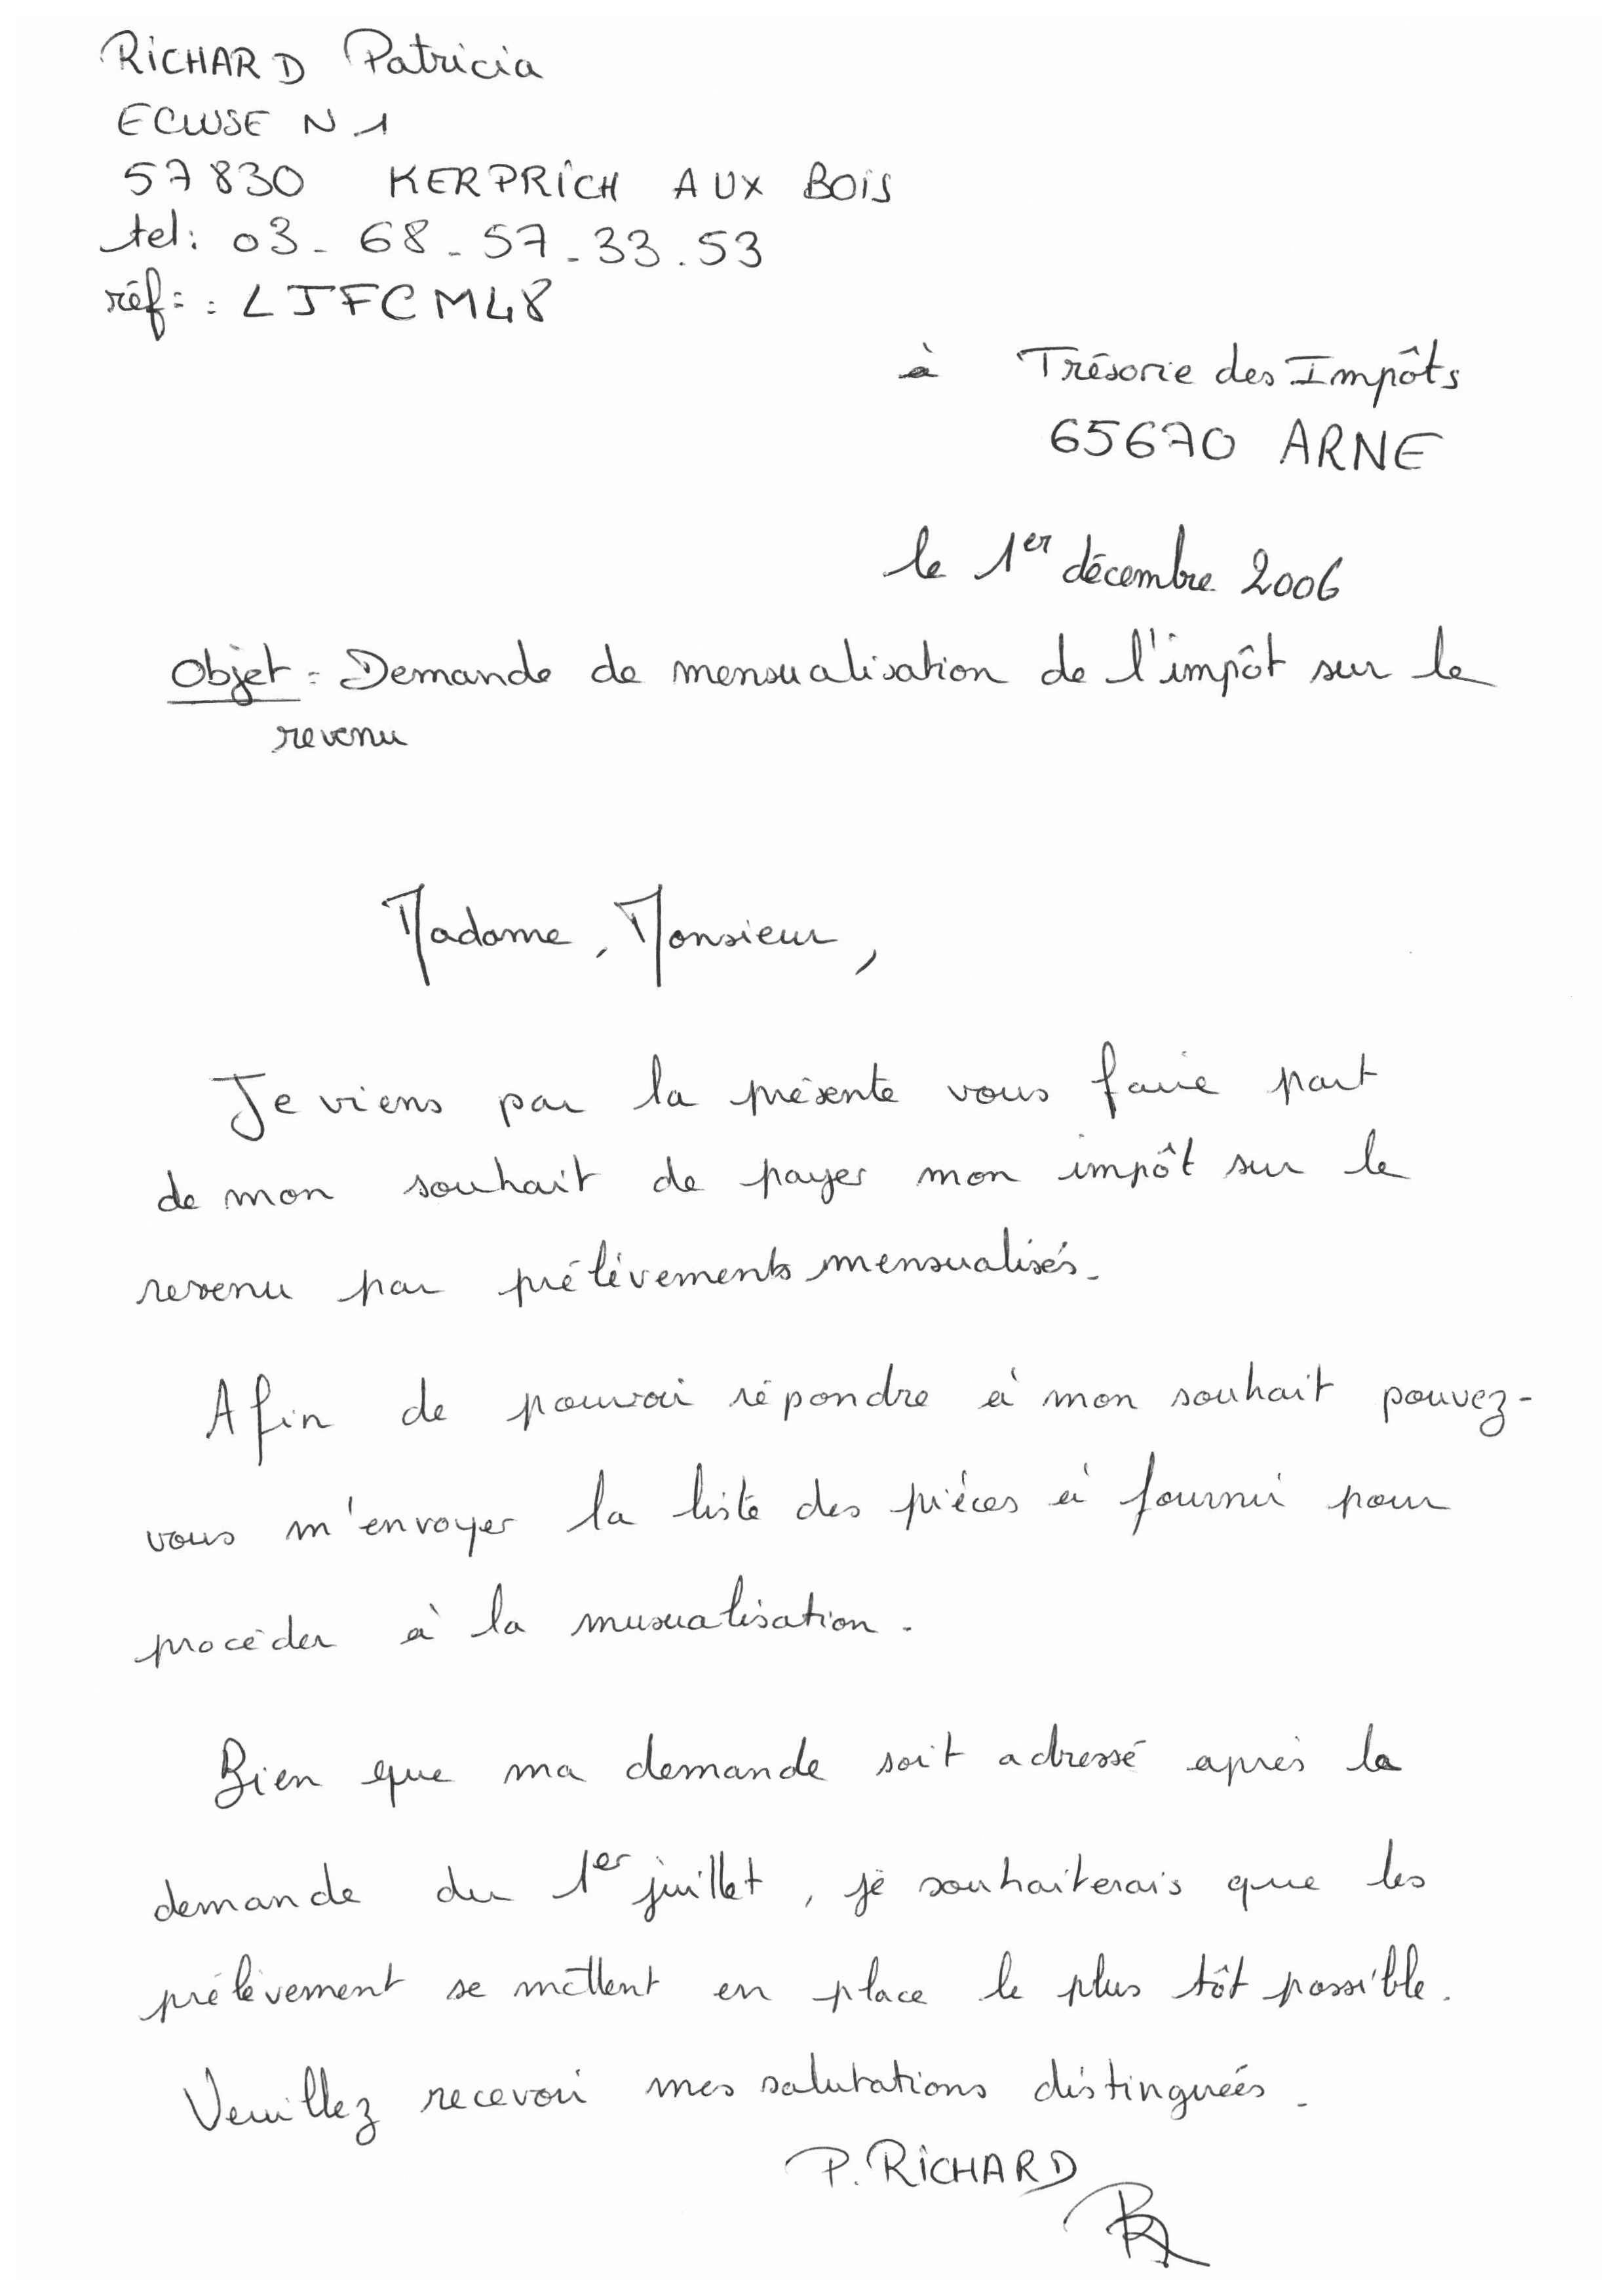 RICHARD Patricia
ECLUSE N 1
57830 KERPRICH AUX BOIS
tel: 03-68-57-33.53
réf: : LJFCM48
à Trésorie des Impôts
65670 ARNE
le 1er décembre 2006
Objet : Demande de mensualisation de l'impôt sur le
revenu
Madame, Monsieur,
Je viens par la présente vous faire part
de mon souhait de payer mon impôt sur le
revenu par prélèvements mensualisés.
Afin de pouvoir répondre à mon souhait pouvez-
vous m'envoyer la liste des pièces à fournir pour
procéder à la musualisation.
Bien que ma demande soit adressé après la
demande du 1er juillet, je souhaiterais que les
prélèvement se mettent en place le plus tôt possible.
Veuillez recevoir mes salutations distinguées.
P. RICHARD